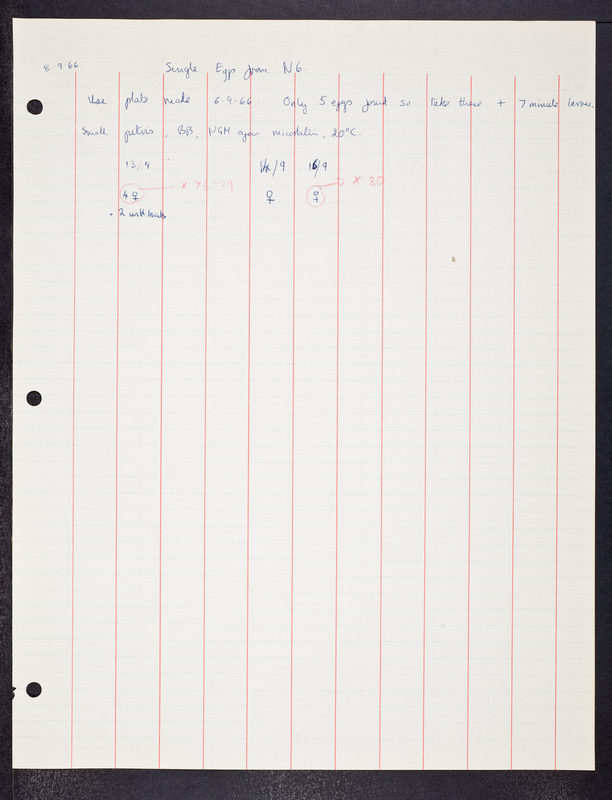 8 9 66. Single Eggs from N6.
Use plate made 6-9-66. Only 5 eggs found so take these + 7 minute larvae.
Small petris, BB, NGM agar micostatin, 20°C.
13/9 /9 16/9
4 ♀ × 76-79 ♀ ♀ × 80
+ 2 with